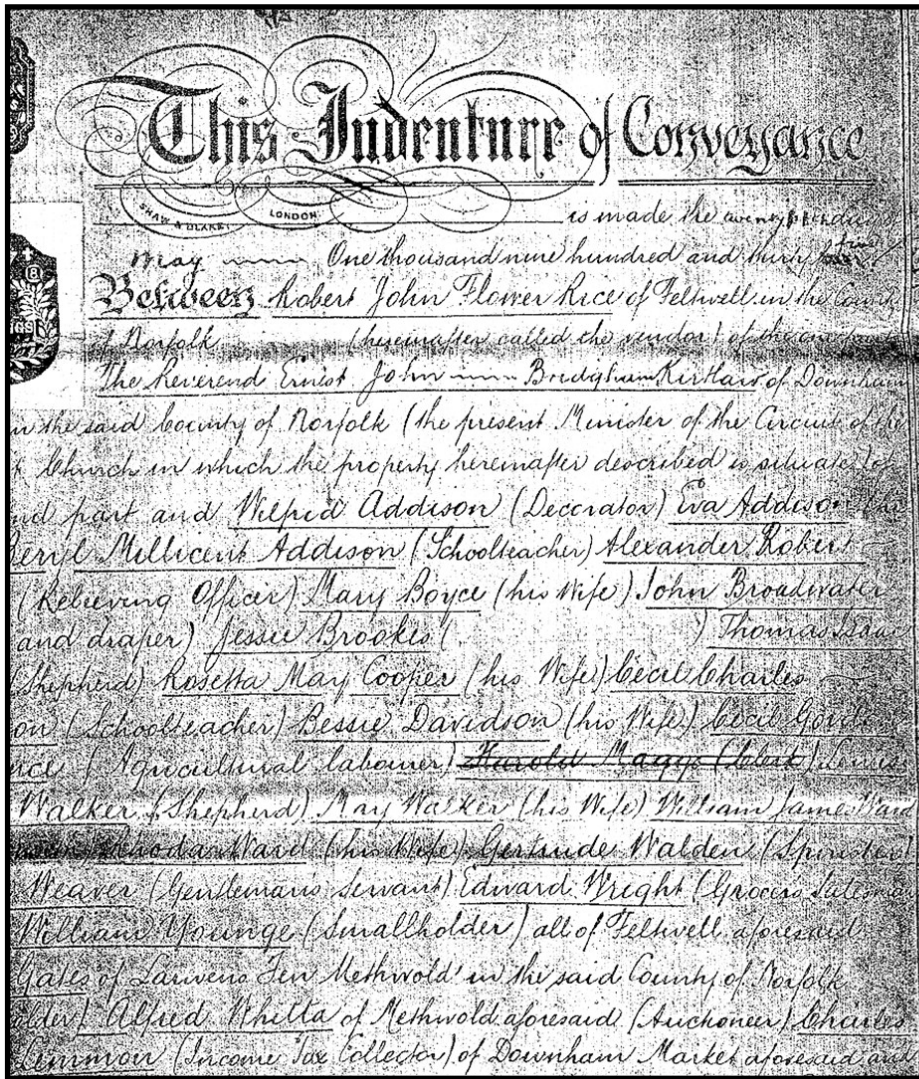 This Indenture of Conveyance
SHAW & BLAKE LONDON
is made the
May One thousand nine hundred and thirty
Between Robert John Flower Rice of Feltwell in the County
of Norfolk (hereinafter called the vendor) of the
The Reverend Ernest John Kirtlaw of Downham
in the said County of Norfolk (the present Minister of the Circuit of the
Church in which the property hereinafter described is situate) of
nd part and Wilfrid Addison (Decorator) Eva Addison (his
eryl Millicent Addison (Schoolteacher) Alexander Robert
(Relieving Officer) Mary Boyce (his Wife) John Broadwater
and draper) Jessie Brookes ( ) Thomas Isaac
(Shepherd) Rosetta May Cooper (his Wife) Cecil Charles
on (Schoolteacher) Bessie Davidson (his Wife) Cecil
nce (Agricultural labourer) Harold Maggs (Clerk)
Walker (Shepherd) May Walker (his Wife) William James Ward
Rhoda Ward (his Wife) Gertrude Walden (Spinster)
Weaver (Gentleman's Servant) Edward Wright (Grocer's
William Younge (Smallholder) all of Feltwell aforesaid
Gates of Fen Methwold in the said County of Norfolk
older) Alfred Whitta of Methwold aforesaid (Auctioneer) Charles
(Income Tax Collector) of Downham Market aforesaid and
8
GS